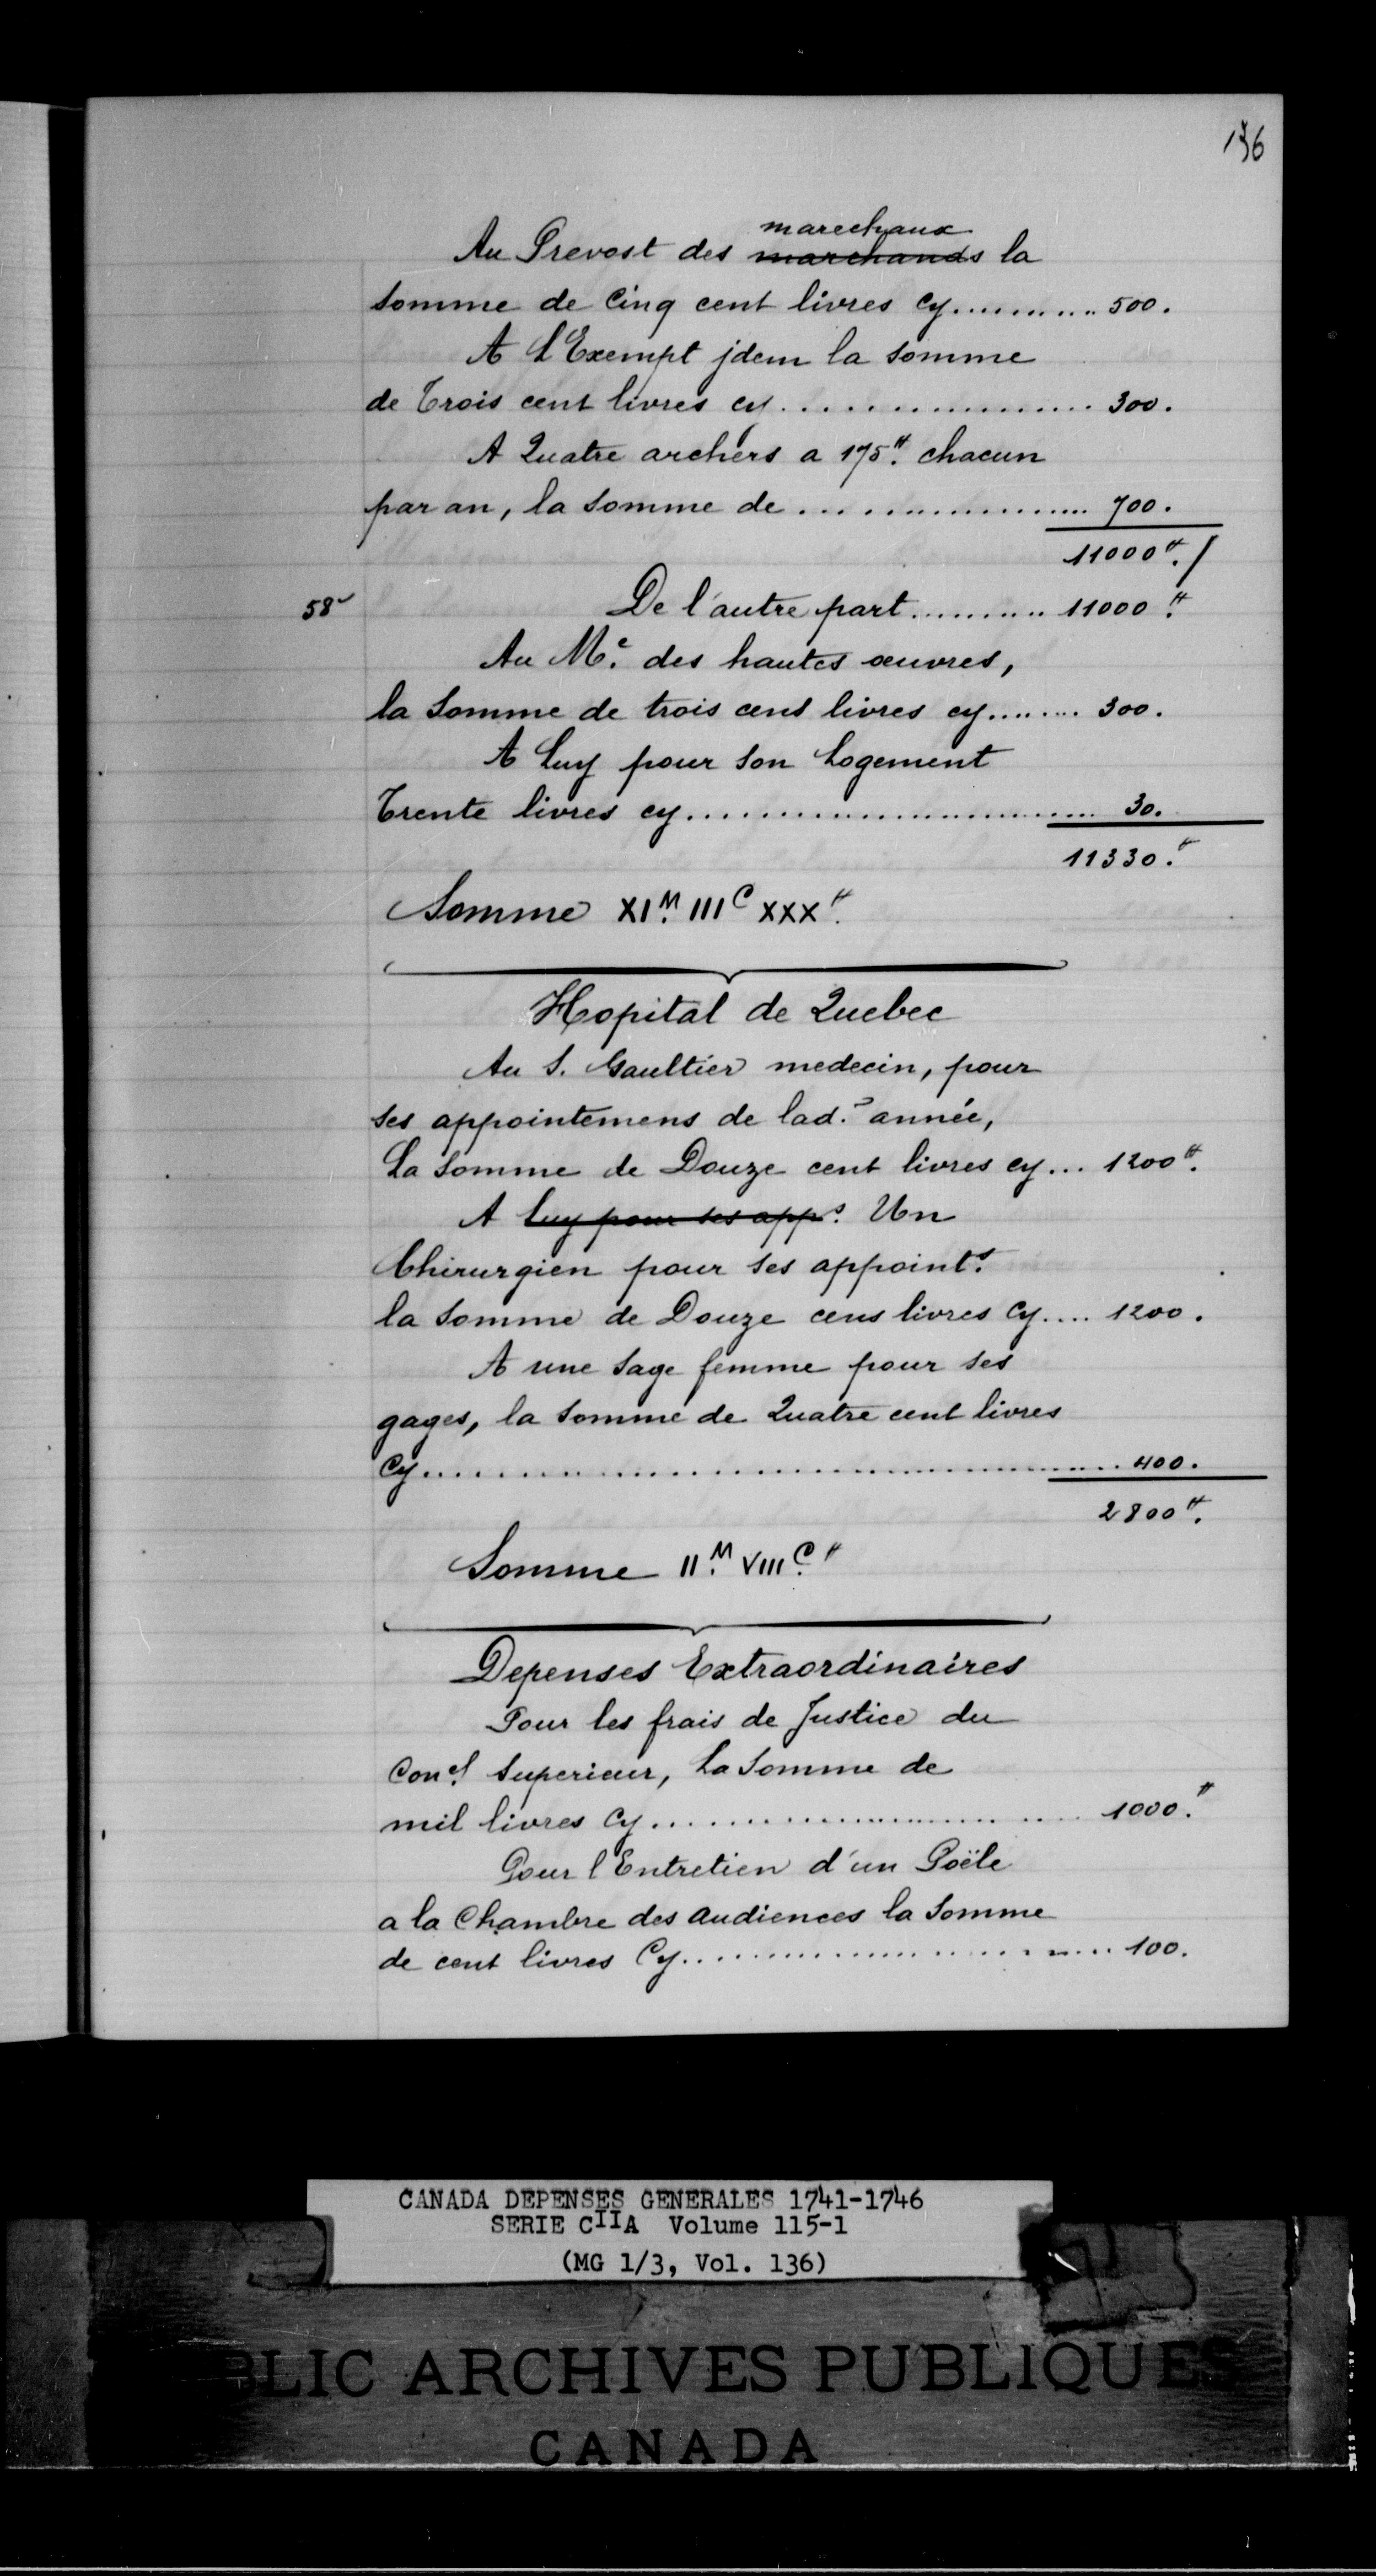 136
marechaux
Au Prevost des marchands la
somme de Cinq cent livres cy........... 500.
A L'Exempt jdem la somme
de Trois cent livres cy.................... 300.
A Quatre archers a 175.# chacun
par an, la somme de .................... 700.
11000#./
58v De l'autre part .......... 11000.#
Au Me. des hautes œuvres,
la Somme de trois cens livres cy........ 300.
A Luy pour son Logement
Trente livres cy........................... 30.
11330.#
Somme XIM. IIIC XXX#.
Hopital de Quebec
Au S. Gaultier medecin, pour
ses appointemens de lad.e année,
La Somme de Douze cent livres cy... 1200#.
A Luy pour ses apps. Un
Chirurgien pour ses appoints.
la Somme de Douze cens livres Cy.... 1200.
A une Sage femme pour ses
gages, la Somme de Quatre cent livres
Cy........................................... 400.
2800#.
Somme IIM. VIIIC.#
Depenses Extraordinaires
Pour les frais de Justice du
Conel. Superieur, La Somme de
mil livres Cy........................... 1000.#
Pour l'Entretien d'un Poële
a la Chambre des audiences la Somme
de cent livres Cy........................... 100.
CANADA DEPENSES GENERALES 1741-1746
SERIE CIIA Volume 115-1
(MG 1/3, Vol. 136)
BLIC ARCHIVES PUBLIQUES
CANADA